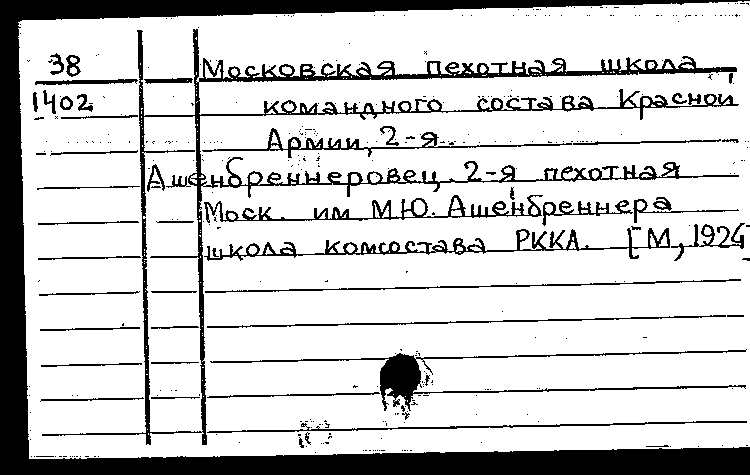 38 Московская пехотная школа
1402 командного состава Красной
Армии, 2-я.
Ашенбреннеровец. 2-я пехотная
Моск. им М.Ю. Ашенбреннера
школа комсостава РККА. [М, 1924]